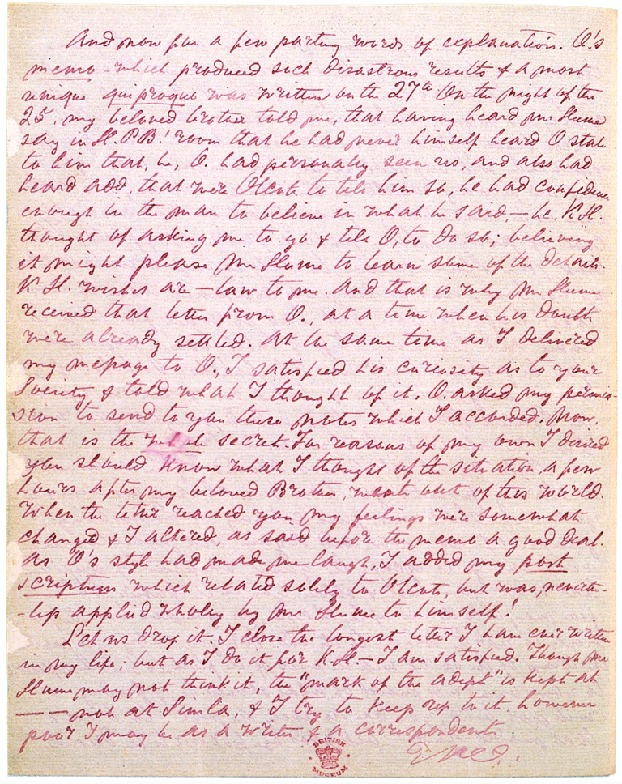 And now for a few parting words of explanation. O's
memo — which produced such disastrous results & a most
unique quiproquo was written on the 27th On the night of the
25, my beloved brother told me, that having heard Mr Hume
say in H.P.B.' room that he had never himself heard O state
to him that he, O. had personally seen us, and also had
heard add, that were Olcott to tell him so, he had confidence
enough in the man to believe in what he said, — he K.H.
thought of asking me to go & tell O, to do so; believing
it might please Mr Hume to learn some of the details.
K H. wishes are — law to me. And that is why Mr Hume
received that letter from O., at a time when his doubts
were already settled. At the same time as I delivered
my message to O, I satisfied his curiosity as to your
Society & told what I thought of it. O. asked my permis-
sion to send to you these notes which I accorded. Now,
that is the secret. For reasons of my own I desired
you should know what I thought of the situation, a few
hours after my beloved Brother, went out of this world.
When the letter reached you my feelings were somewhat
changed & I altered, as said before the memo a good deal.
As O's style had made me laugh, I added my post
scriptum which related solely to Olcott, but was, neverthe-
-less applied wholly by Mr Hume to himself!
Let us drop it. I close the longest letter I have ever written
in my life; but as I do it for K.H. — I am satisfied. Though Mr
Hume may not think it, the "mark of the adept" is kept at
—— not at Simla, & I try to keep up to it, however
poor I may be as a writer & a correspondent
BRITISH
MUSEUM